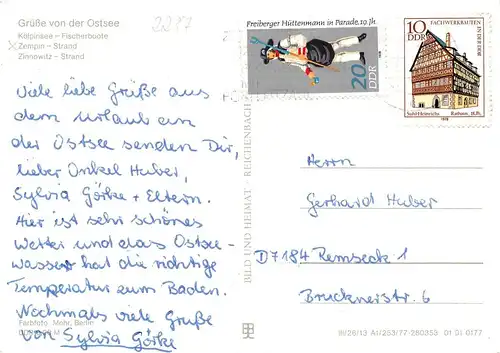 Grüße von der Ostsee
Kölpinsee – Fischerboote
Zempin – Strand
Zinnowitz – Strand
Viele liebe Grüße aus
dem Urlaub an
der Ostsee senden Dir,
lieber Onkel Huber,
Sylvia Görke + Eltern.
Hier ist sehr schönes
Wetter und das Ostsee-
wasser hat die richtige
Temperatur zum Baden.
Nochmals viele Grüße
von Sylvia Görke
Farbfoto: Mohr, Berlin
BILD UND HEIMAT REICHENBACH
Freiberger Hüttenmann in Parade, 19. Jh.
20
DDR
10
DDR
FACHWERKBAUTEN
IN DER DDR
Suhl-Heinrichs Rathaus, 16. Jh.
1978
Herrn
Gerhard Huber
D7184 Remseck 1
Brucknerstr. 6
III/26/13 A1/253/77-280353 01 Di 0177